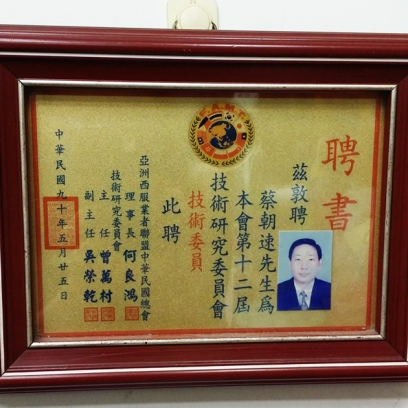 聘書
茲敦聘
蔡朝速先生為
本會第十二屆
技術研究委員會
技術委員
此聘
亞洲西服業者聯盟中華民國總會
理事長 何良鴻
技術研究委員會
主任 曾萬村
副主任 吳榮乾
中華民國九十年五月廿五日
F.A.M.T.